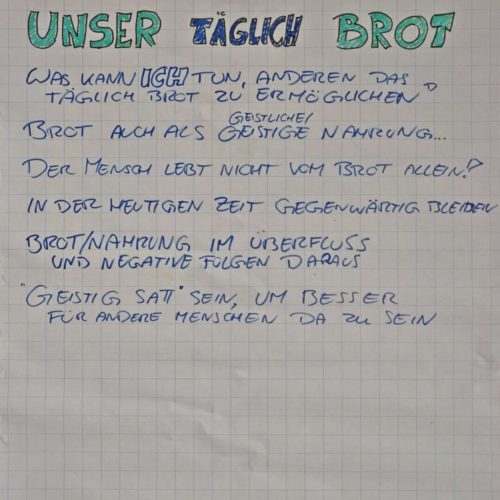 UNSER TÄGLICH BROT
WAS KANN ICH TUN, ANDEREN DAS
TÄGLICH BROT ZU ERMÖGLICHEN?
GEISTLICHE/
BROT AUCH ALS GEISTIGE NAHRUNG...
DER MENSCH LEBT NICHT VOM BROT ALLEIN!?
IN DER HEUTIGEN ZEIT GEGENWÄRTIG BLEIBEN
BROT/NAHRUNG IM ÜBERFLUSS
UND NEGATIVE FOLGEN DARAUS
"GEISTIG SATT" SEIN, UM BESSER
FÜR ANDERE MENSCHEN DA ZU SEIN